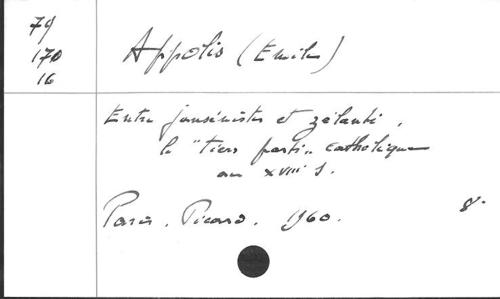 79
170
16
Appolis (Emile)
Entre jansénistes et zelanti,
le "tiers parti" catholique
au XVIII s.
Paris. Picard. 1960. 8°